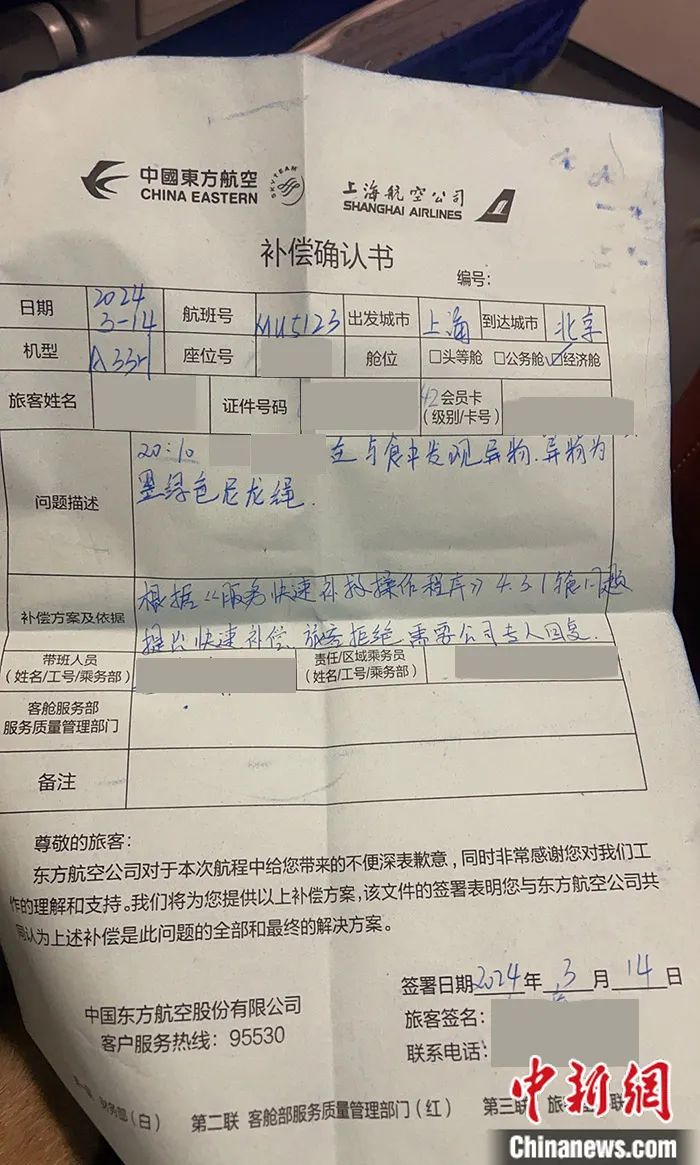 中國東方航空
CHINA EASTERN
SKYTEAM
上海航空公司
SHANGHAI AIRLINES
补偿确认书
编号:
日期 2024 3-14 航班号 MU5123 出发城市 上海 到达城市 北京
机型 A33 座位号 舱位 □头等舱 □公务舱 ☑经济舱
旅客姓名 证件号码 42 会员卡
(级别/卡号)
问题描述 20:10 在与食中发现异物.异物为
墨绿色尼龙绳.
补偿方案及依据 根据《服务快速补救操作程序》4.3.1 问题
提出快速补偿、旅客拒绝.需要公司专人回复.
带班人员
(姓名/工号/乘务部)
责任/区域乘务员
(姓名/工号/乘务部)
客舱服务部
服务质量管理部门
备注
尊敬的旅客:
东方航空公司对于本次航程中给您带来的不便深表歉意,同时非常感谢您对我们工
作的理解和支持。我们将为您提供以上补偿方案,该文件的签署表明您与东方航空公司共
同认为上述补偿是此问题的全部和最终的解决方案。
签署日期 2024 年 3 月 14 日
中国东方航空股份有限公司
客户服务热线:95530
旅客签名:
联系电话:
财务部(白) 第二联 客舱部服务质量管理部门(红) 第三联 旅
中新网
Chinanews.com